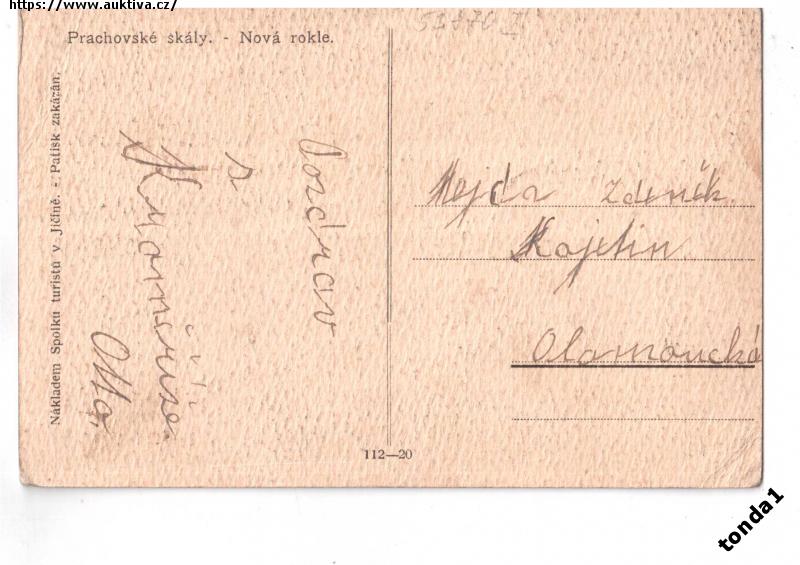 https://www.auktiva.cz/
53770 I
Prachovské skály. - Nová rokle.
Nákladem Spolku turistů v Jičíně. - Patisk zakázán.
Pozdrav
s
Otto,
Nejda Zdeněk.
Kojetin
Olomoucká
112—20
tonda1